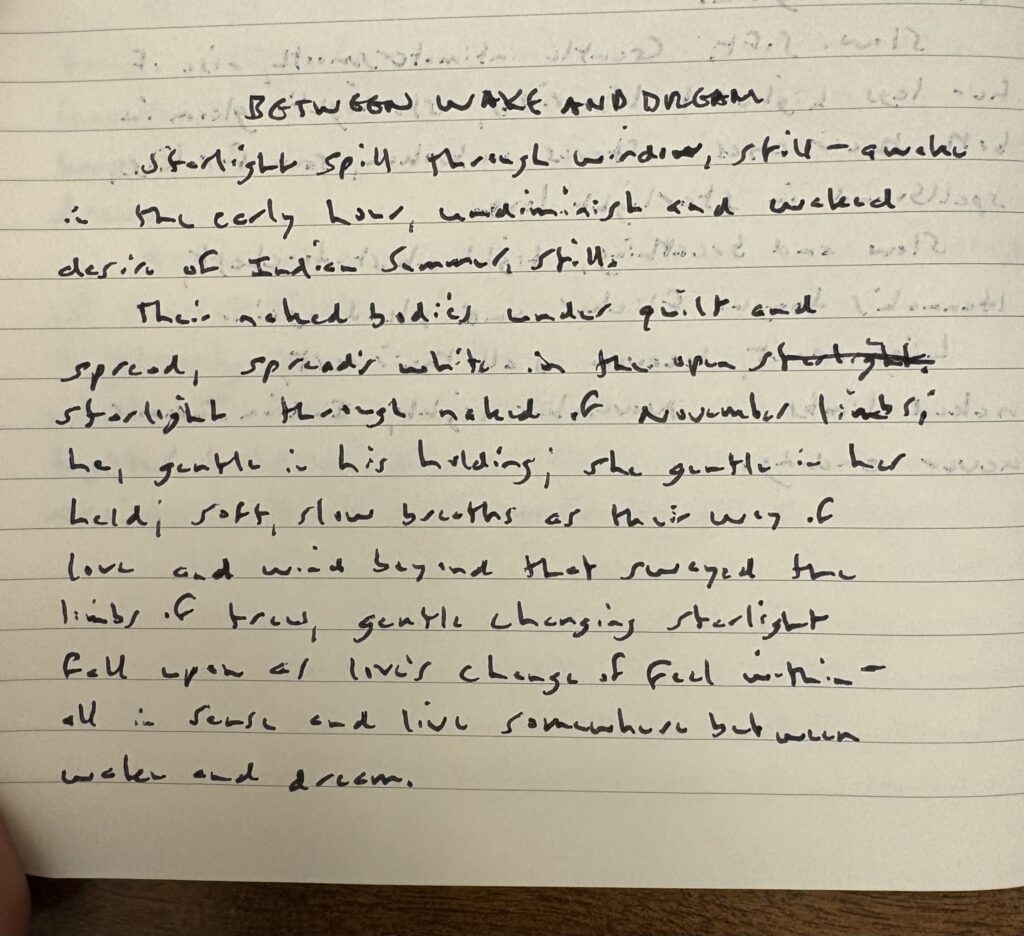 BETWEEN WAKE AND DREAM
Starlight spill through window, still - awake
in the early hour, undiminish and waked
desire of Indian Summer, still.
Their naked bodies under quilt and
spread, spreads white in the open starlight.
starlight through naked of November limbs;
he, gentle in his holding; she gentle in her
held; soft, slow breaths as their way of
love and wind beyond that swayed the
limbs of trees, gentle changing starlight
fall upon as love's change of feel within -
all in sense and live somewhere between
wake and dream.